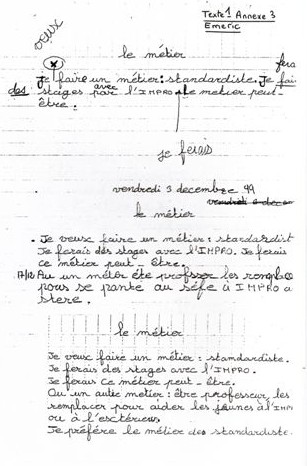 Texte 1 Annexe 3
Emeric
veux
le métier
fera
Je faire un métier : standardiste. Je fai
des stages avec par l'IMPRO le metier peut-
être.
je ferais
vendredi 3 decembre 99
vendredi 3 decem
le métier
. Je veux faire un métier : standardist
Je ferais des stages avec l'IMPRO. Je ferais
ce métier peut - être.
17/12 Au un métér éte professer les remplace
pour se à IMPRO a
stere.
le métier
Je veux faire un métier : standardiste.
Je ferais des stages avec l'IMPRO.
Je ferais ce métier peut - être.
Ou un autre métier : être professeur, les
remplacer pour aider les jeunes à l'IMP
ou à l'extérieur.
Je préfère le métier des standardiste.